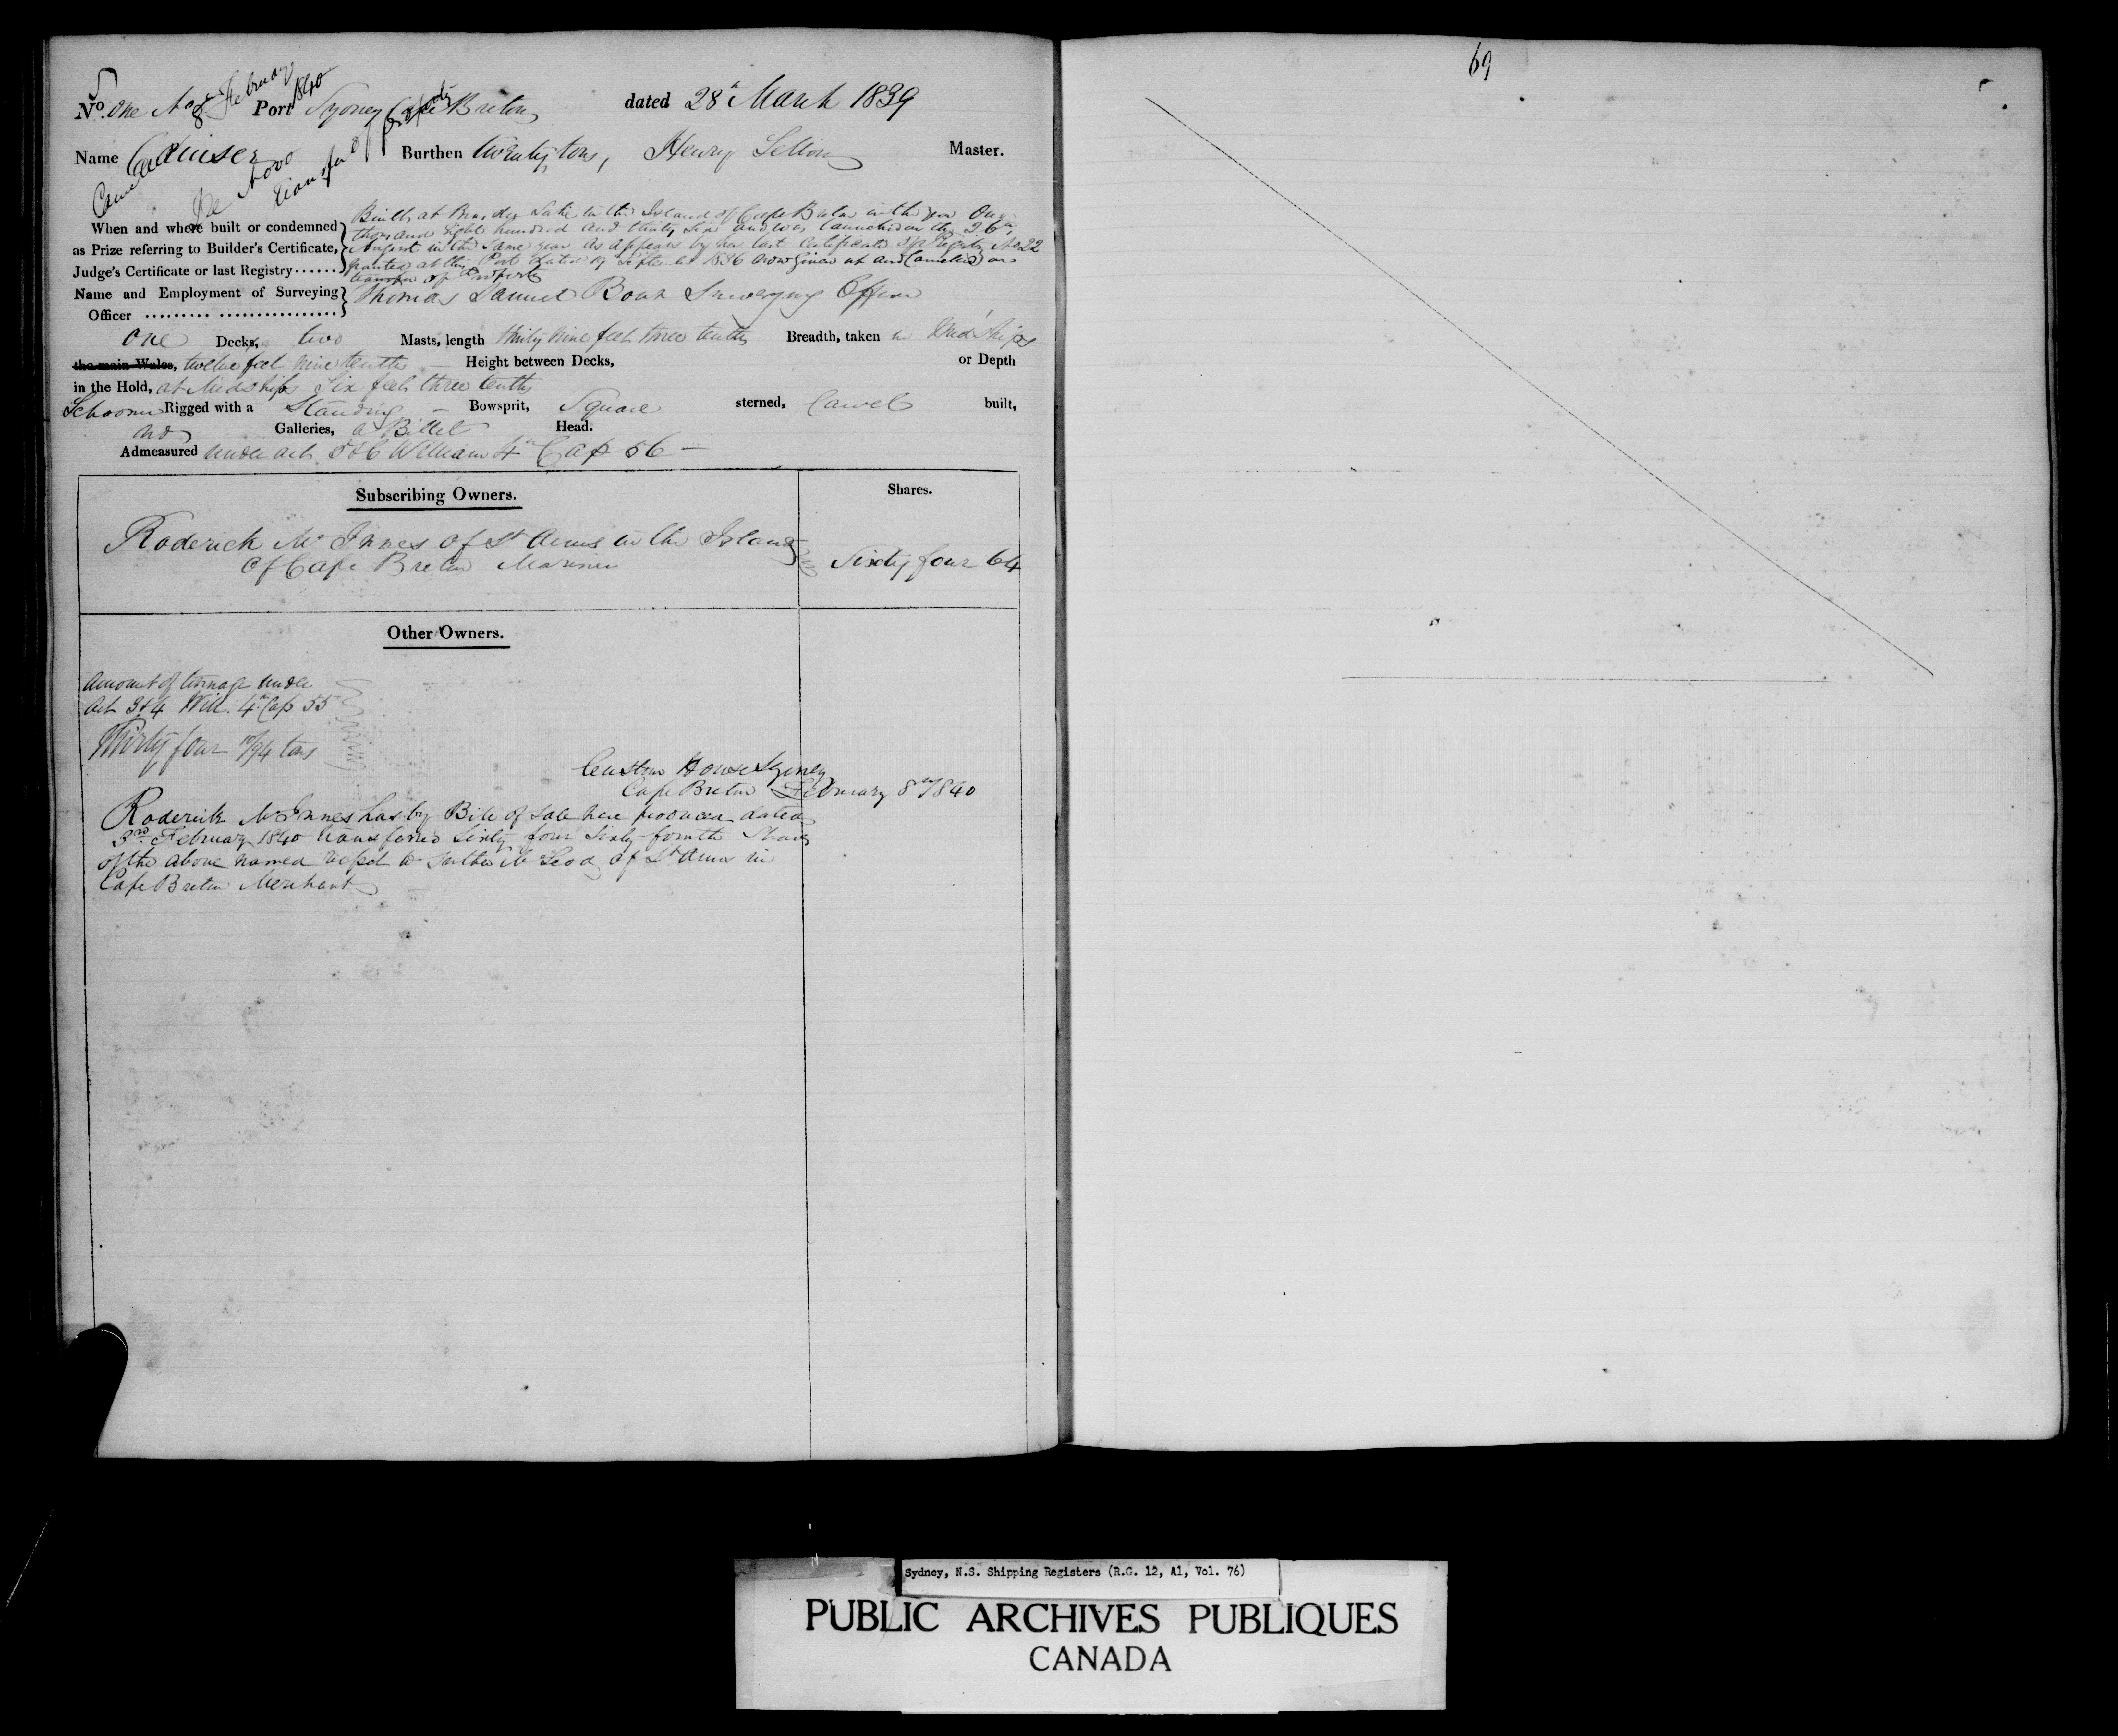 69
No. One Port Sydney Cape Breton dated 28th March 1839
Cancelled 8th February 1840 De Novo transfer of property
Name Cruiser Burthen twenty tons, Henry Master.
When and where built or condemned as Prize referring to Builder's Certificate, Judge's Certificate or last Registry......
Built at Bras dor Lake in the Island of Cape Breton in the year One
thousand Eight hundred and thirty Six and was launched on the 26th
August in the same year as appears by her last Certificate of Registry No 22
granted at this Port dated 19th September 1836 now given up and Cancelled on
transfer of Property
Name and Employment of Surveying Officer Thomas Samuel Surveying Officer
One Decks, two Masts, length thirty nine feet three tenths Breadth, taken in Midships
the main Wales, twelve feet nine tenths — Height between Decks, or Depth
in the Hold, at Midships Six feet three tenths
Schooner Rigged with a Standing — Bowsprit, Square sterned, Carvel built,
no Galleries, a Billet Head.
Admeasured under act 5 & 6 William 4th Cap 56 —
Subscribing Owners. Shares.
Roderick McInnes of St Anns in the Island
of Cape Breton Mariner
Sixty four 64
Other Owners.
Amount of tonnage under
Act 3 & 4 Will. 4th Cap 55
Thirty four 10/94 tons
Custom House Sydney
Cape Breton February 8th 1840
Roderick McInnes has by Bill of Sale here produced dated
3rd February 1840 transferred Sixty four Sixty fourth Shares
of the above named vessel to McLeod of St Anns in
Cape Breton Merchant
Sydney, N.S. Shipping Registers (R.G. 12, A1, Vol. 76)
PUBLIC ARCHIVES PUBLIQUES
CANADA